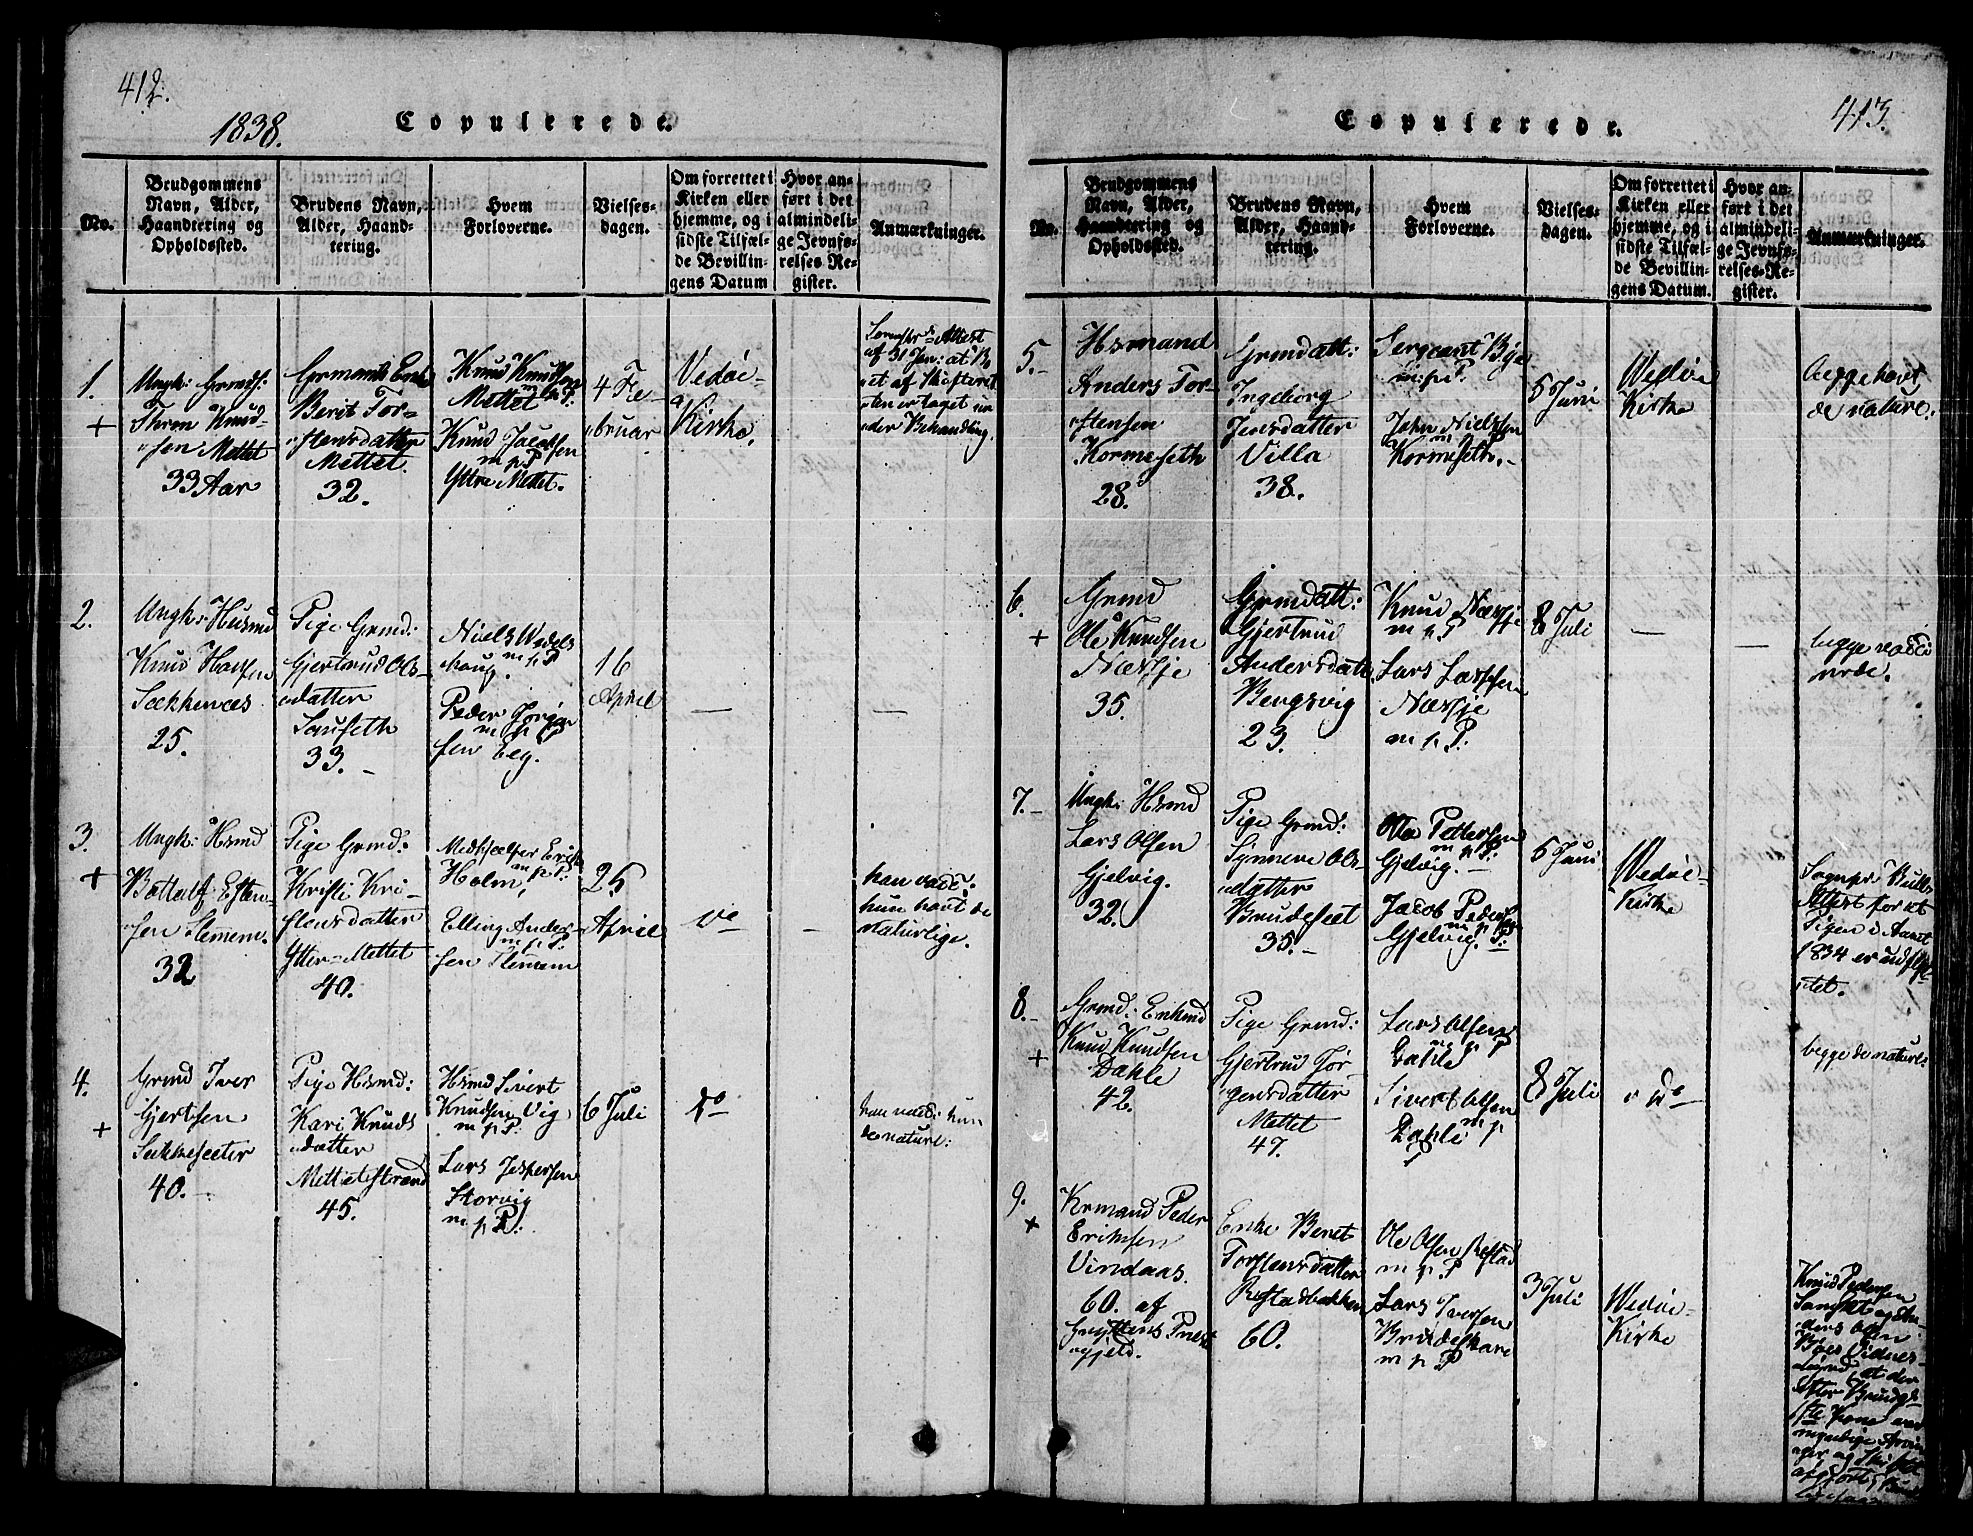 412.
1838.
Copulerede.
No.
Brudgommens
Navn, Alder,
Haandtering og
Opholdssted.
Brudens Navn,
Alder, Haand-
tering.
Hvem
Forloverne.
Vielses-
dagen.
Om forrettet i
Kirken eller
hjemme, og i
sidste Tilfæl-
de Bevillin-
gens Datum
Hvor an-
ført i det
almindeli-
ge Jevnfø-
relses-Re-
gister.
Anmærkninger.
1.
+
Ungk: Grmds:
Knud-
sen Mettet
33 Aar
Grmands Enke
Berit Tor-
stensdatter
Mettet.
32.
Knud Knudsen
Mettet m p:
Knud Jacobsen
m p P
Yttre Mettet.
4 Fe-
bruar
Vedøe-
Kirke.
Attest
af 31 Jan: at
et af Skifteret
ten er taget un
der Behandling.
2.
Ungk: Husmd
Knud
Sekkenæs
25.
Pige Grmd:
Gjertrud Ols-
datter
Sauseth
33.
Niels Wedels
houg. m p P
Peder Jørgen
m p P
sen Eeg.
16
April
—
—
3.
+
Ungk: Hsmd
Botlalf Esten-
sen Flemmem.
32
Pige Grmd:
Kristi Kri-
stensdatter
Ytter-Mettet
40.
Medhjælper Erik
Holm, m p P:
Elling Ander-
m p P.
sen Flemem
25
April
do
-
han vacc:
hun havt de
naturlige.
4.
+
Grmd Iver
Gjertsen
Sekkesæter
40.
Pige Hsmd:
Kari Knuds
datter
Mettetstrand
45.
Hsmd Sivert
Knudsen Vig
m p P:
Lars Jespersen
Storvig
m p P:
6 Juli
do
han vacc: hun
de nature:
413.
Copulerede.
No.
Brudgommens
Navn, Alder,
Haandtering og
Opholdssted.
Brudens Navn,
Alder, Haand-
tering.
Hvem
Forloverne.
Vielses-
dagen.
Om forrettet i
Kirken eller
hjemme, og i
sidste Tilfæl-
de Bevillin-
gens Datum.
Hvor an-
ført i det
almindeli-
ge Jevnfø-
relses-Re-
gister.
Anmærkninger.
5.
Hsmand
Anders Tor-
stensen
Kormeseth
28.
Grmdatt:
Ingeborg
Jensdatter
Villa
38.
Sergeant Bye
m p P.
John Nielsen
m P
Kormeseth.
5 Juni
Wedøe
Kirke
begge havt
de nature.
6.
+
Grmd
Ole Knudsen
Næsje
35.
Grmdatt:
Gjertrud
Andersdatt
Bergsvig
23.
Knud Næsje
m p P
Lars Larssen
Næsje
m p P:
8 Juli
—
—
begge vacci
nerede.
7.
Ungk: Hsmd
Lars Olsen
Gjelvig.
32.
Pige Grmd:
Synneve Ols-
datter
Brudesæt
35.
Ole Pettersen
m p P:
Gjelvig.
Jacob Pedersen
m p
Gjelvig. P:
5 Juni
Wedøe-
Kirke
Sognepr. Bulls
Attest for at
Pigen i Aaret
1834 er udflyt-
tet.
8.
+
Grmd: Enkmd
Knud Knudsen
Dahle
42.
Pige Grmd:
Gjertrud Jør-
gensdatter
Mettet
47.
Lars Olsen
m p P
Dahle
Sivert Olsen
m p
Dahle
8 Juli
do
begge de nature:
9.
+
Krmand Peder
Eriksen
Vindaas.
60. af
Gryttens Præst
gjeld.
Enke Beret
Torstensdatter
Røstadbakken
60.
Ole Olsen Røstad
m p P
Lars Iversen
Brudeskare
m p P
3 Juli
Wedøe-
Kirke
Knud Pedersen
og An-
ders Olsen
Boes Vidnes-
byrd at der
efter Brudg:
1ste Kone
myndige Arvin
ger og Skifte
afgjort,